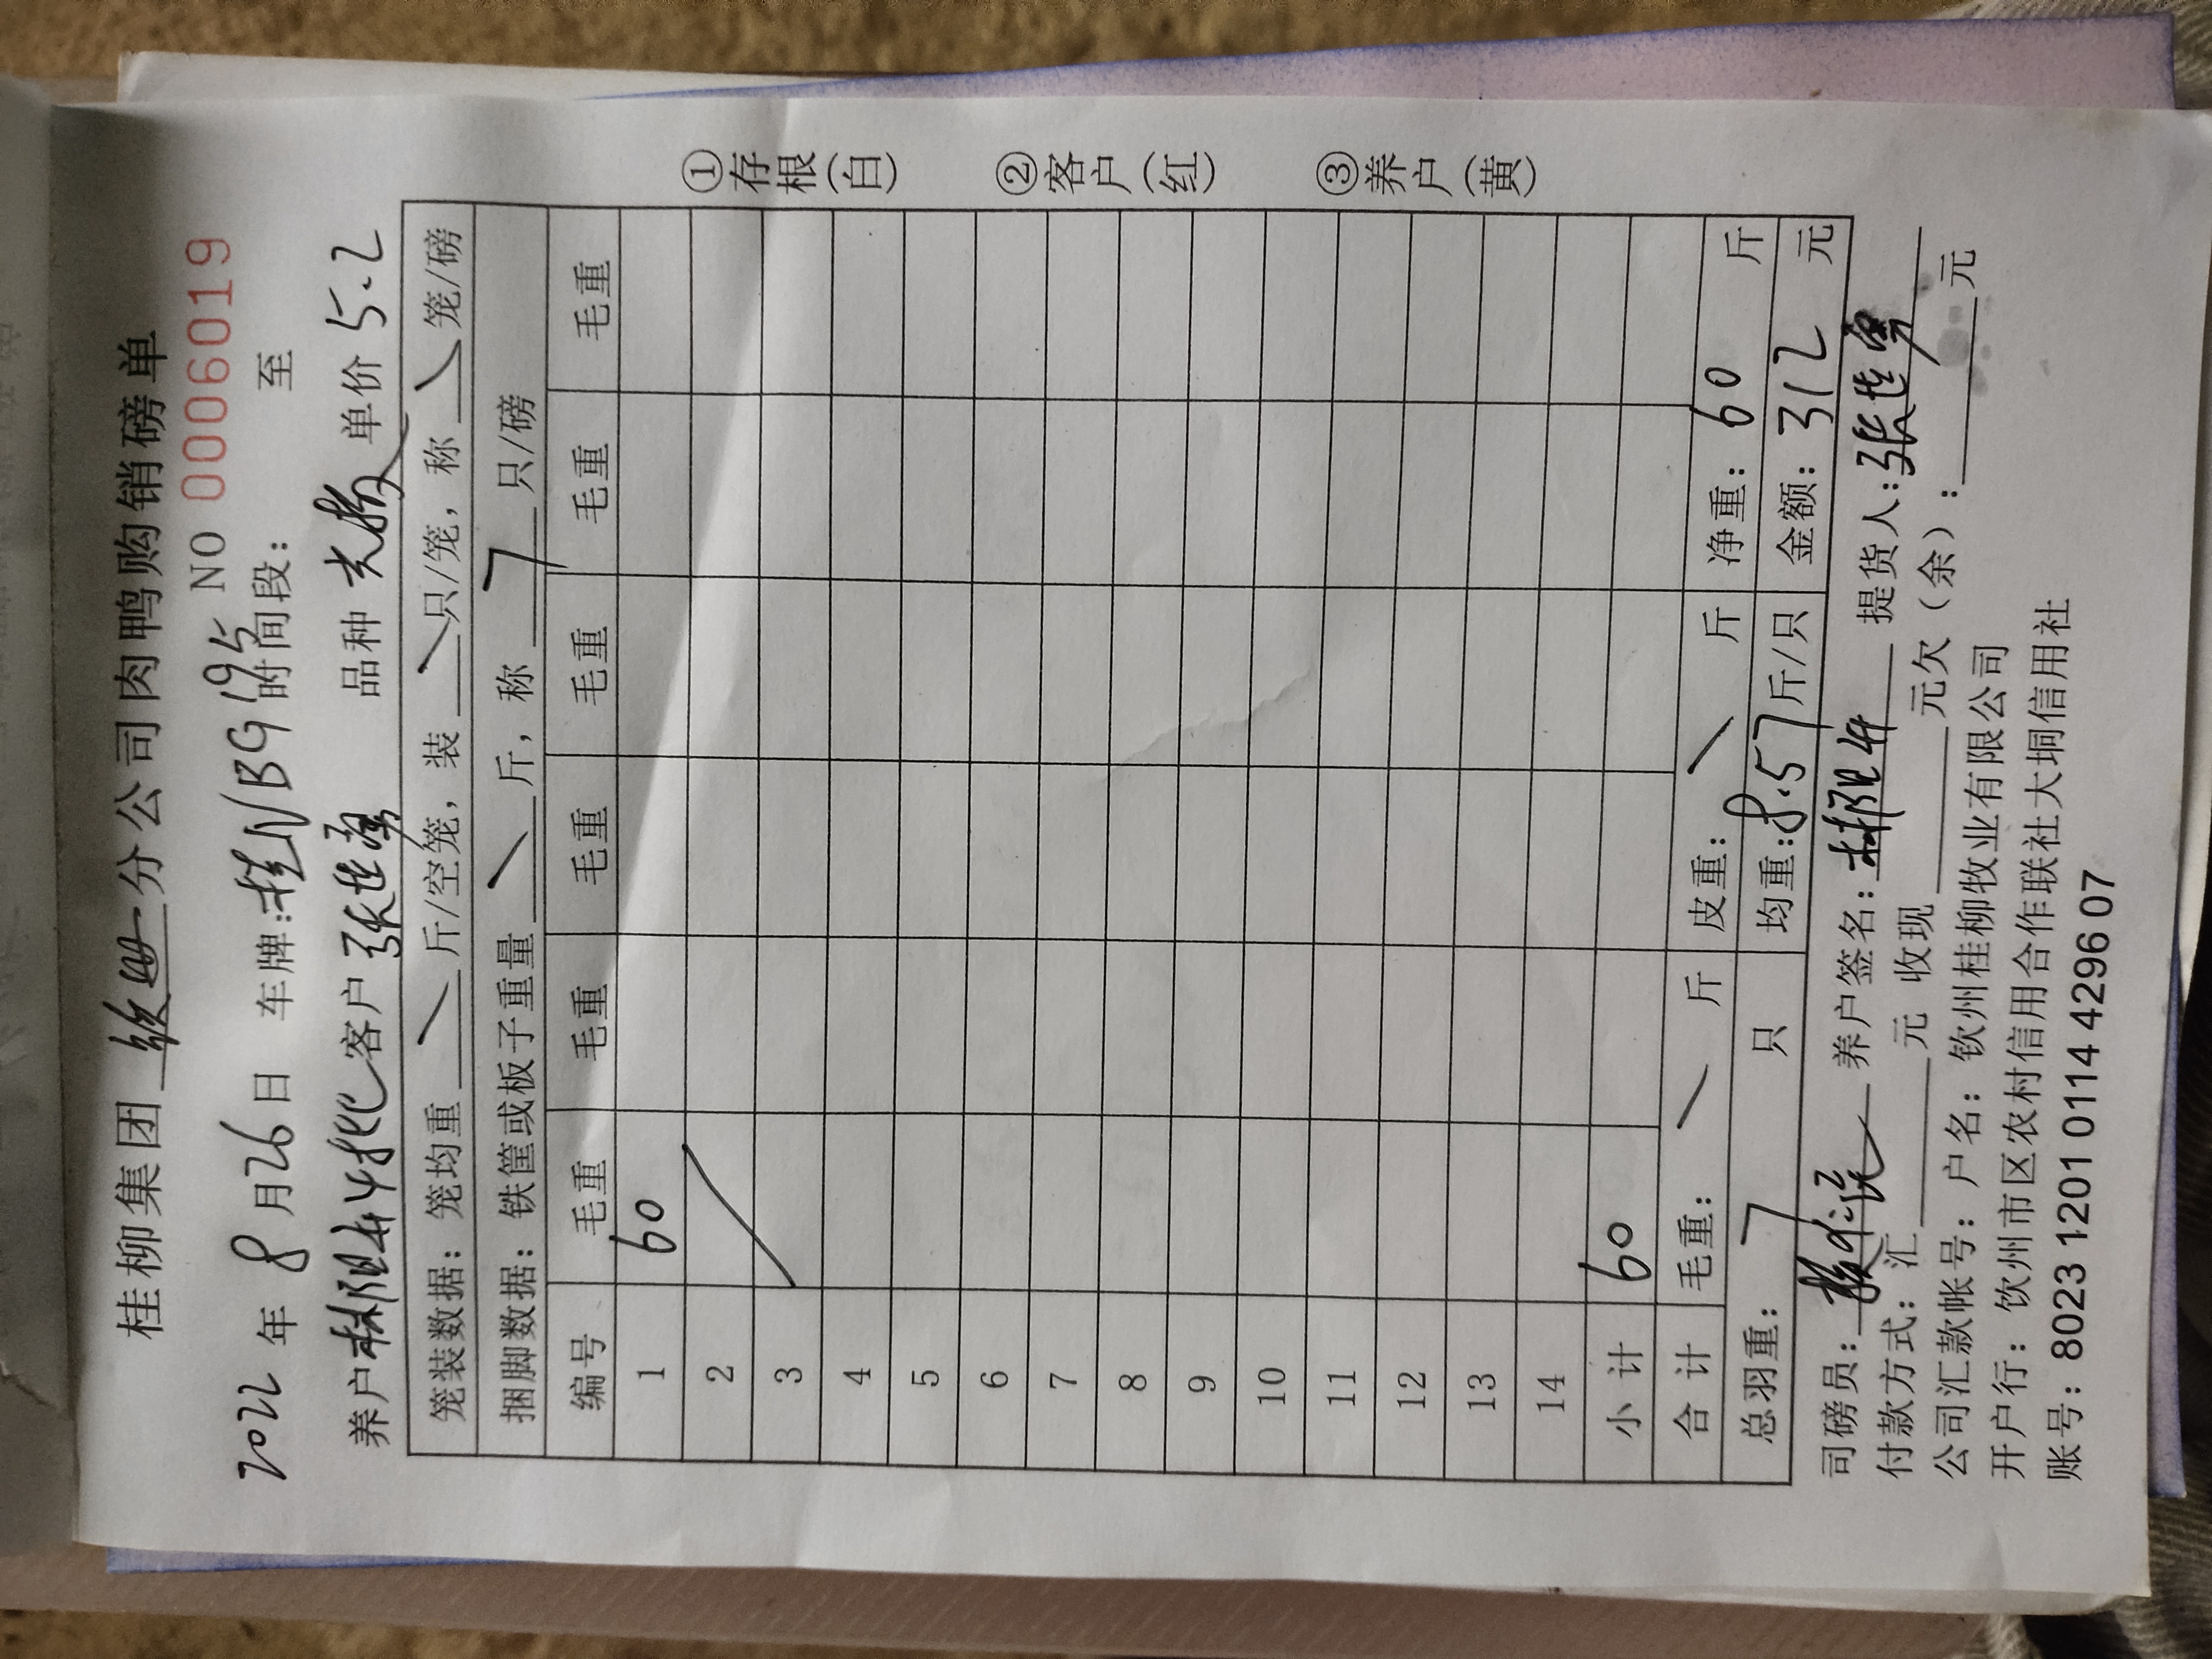 桂柳集团 分公司肉鸭购销磅单
NO 0006019
2022 年 8 月 26 日 车牌:桂NBG195 时间段: 至
养户 林阳升 批 客户 张世勇 品种 单价 5.2
笼装数据:笼均重 \ 斤/空笼,装 \ 只/笼,称 \ 笼/磅
捆脚数据:铁筐或板子重量 \ 斤,称 7 只/磅
编号 毛重 毛重 毛重 毛重 毛重 毛重
1 60
2
3
4
5
6
7
8
9
10
11
12
13
14
小计 60
合计 毛重: \ 斤 皮重: \ 斤 净重: 60 斤
总羽重: 7 只 均重: 8.57 斤/只 金额: 312 元
司磅员: 养户签名: 林阳升 提货人: 张世勇
付款方式:汇 元 收现 元欠(余): 元
公司汇款帐号:户名:钦州桂柳牧业有限公司
开户行:钦州市区农村信用合作联社大垌信用社
账号:8023 1201 0114 4296 07
①存根(白)
②客户(红)
③养户(黄)